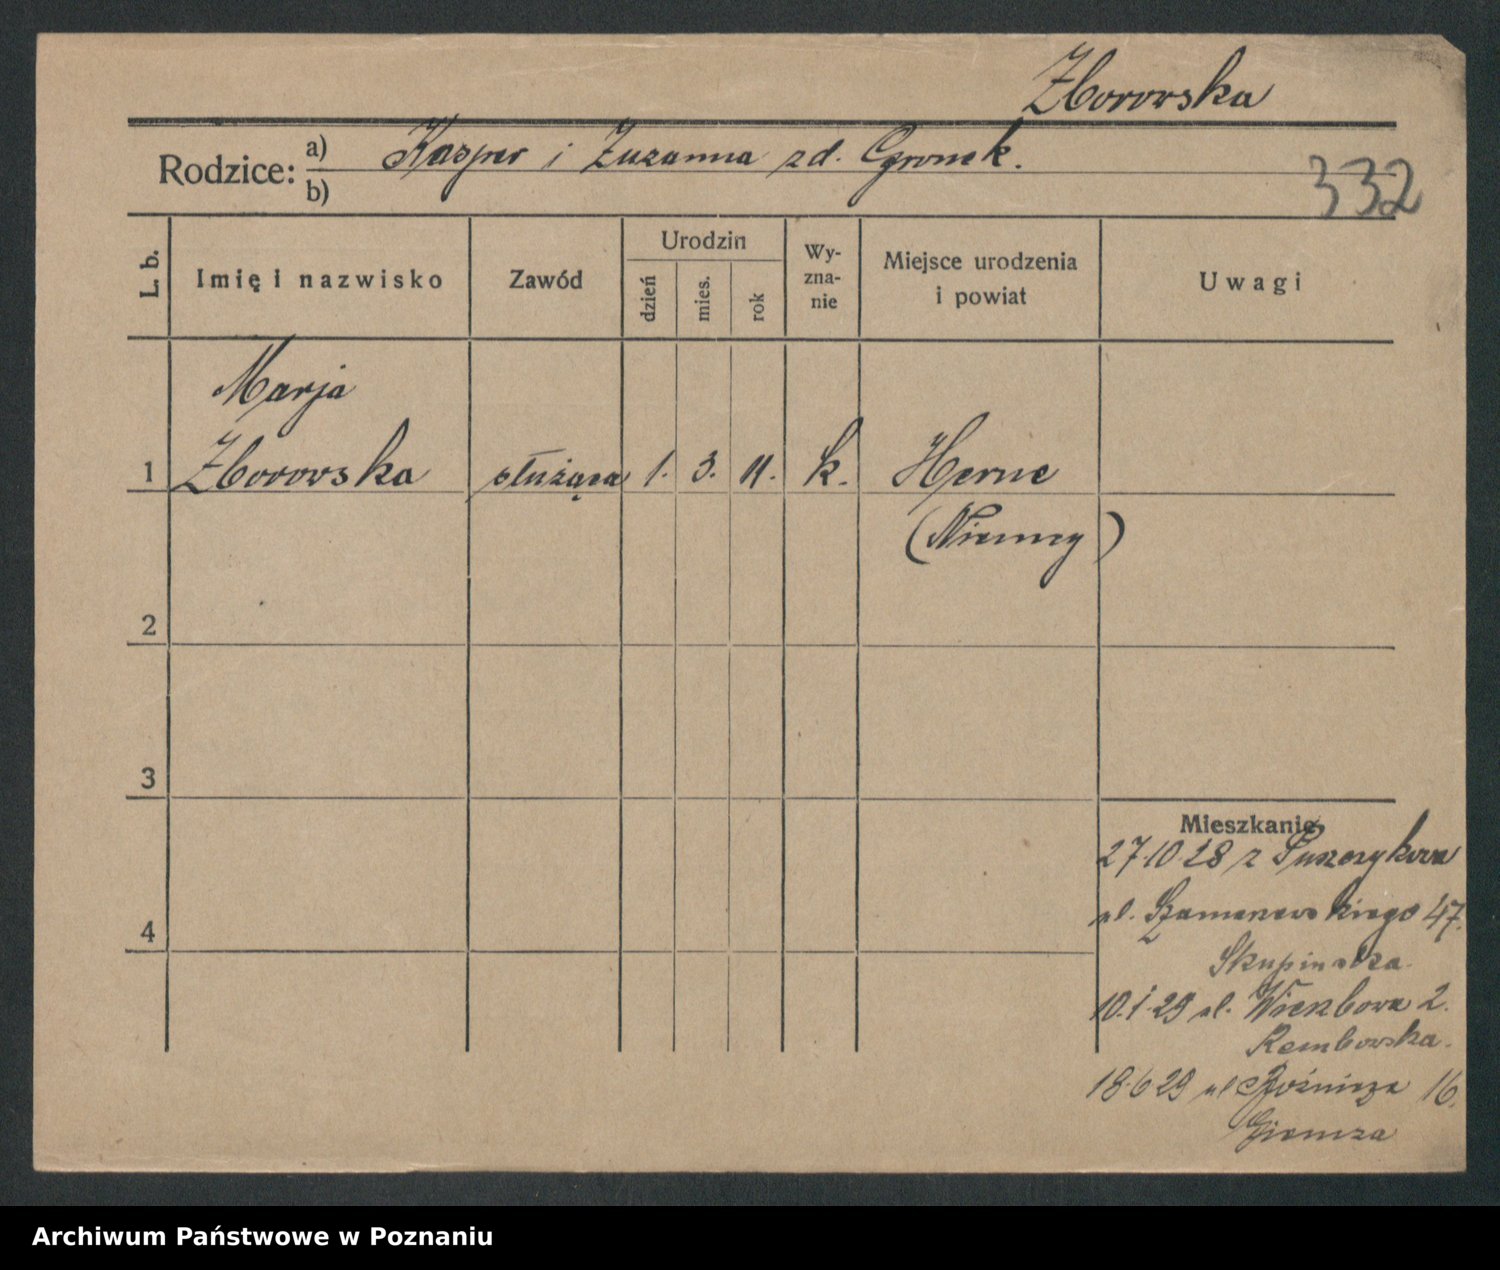 Zborowska
Rodzice: a) Kasper i Zuzanna zd. Cgronek.
b)
332
L. b.
Imię i nazwisko
Zawód
Urodzin
dzień
mies.
rok
Wy-
zna-
nie
Miejsce urodzenia
i powiat
Uwagi
Marja
1 Zborowska służąca 1. 3. 11. k. Herne
(Niemcy)
2
3
Mieszkanie
27.10.28 z Puszczykowa
ul. Szamarzewskiego 47.
4
Skupinska
10.1.29 ul. Wierzbowa 2.
Rembowska.
18.6.29 ul 16.
Giemza
Archiwum Państwowe w Poznaniu